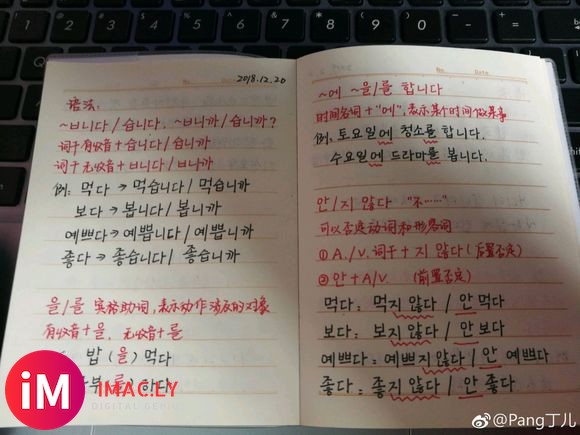 2018.12.20
语法:
~ㅂ니다/습니다, ~ㅂ니까/습니까?
词干有收音+습니다/습니까
词干无收音+ㅂ니다/ㅂ니까
例: 먹다 → 먹습니다/먹습니까
보다 → 봅니다/봅니까
예쁘다 → 예쁩니다/예쁩니까
좋다 → 좋습니다/좋습니까
을/를 宾格助词,表示动作涉及的对象
有收音+을, 无收音+를
밥(을)먹다
부(를)하다
iM IMAC.LY
No. Date.
~에 ~을/를 합니다
时间名词+"에",表示某个时间做某事
例, 토요일에 청소를 합니다.
수요일에 드라마를 봅니다.
안/지 않다 "不……"
可以否定动词和形容词
① A./V. 词干+지 않다(后置否定)
② 안+A/V. (前置否定)
먹다: 먹지 않다/안 먹다
보다: 보지 않다/안 보다
예쁘다: 예쁘지 않다/안 예쁘다
좋다: 좋지 않다/안 좋다
@Pang丁儿